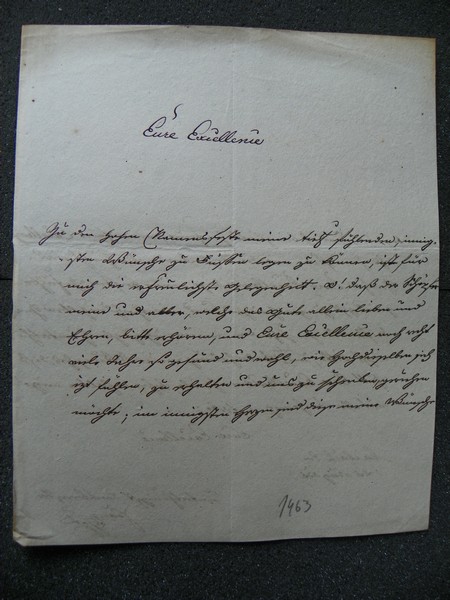 Eure Excellenie
Zu dem hohen Namensfeste meine tief fühlenden, innig-
sten Wünsche zu Füssen legen zu können, ist für
mich die erfreulichste Gelegenheit. O! daß der Schöpfer
meine und aller, welche das Gute allein lieben und
Ehren, bitte erhören, und Eure Excellenie noch recht
viele Jahre so gesund und wohl, wie Hochdieselbe sich
izt fühlen, zu erhalten und uns zu schenken geruhen
möchte; im innigsten sind diese meine Wünsche
1463